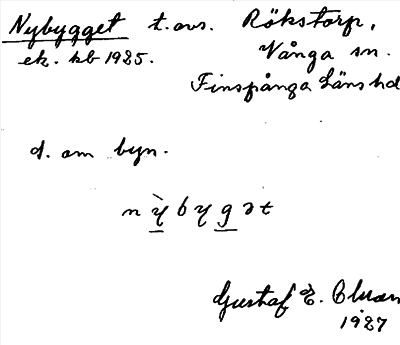 Nybygget t. avs. Rökstorp,
ek. kb 1925. Vånga sn.
Finspånga läns hd
d. om byn.
n ỳ̲ b y g̲ ə t
Gustaf E.
1927